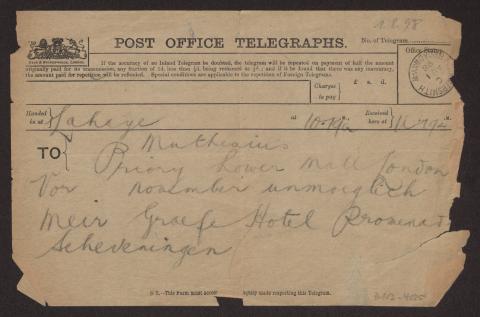 1.8.98
POST OFFICE TELEGRAPHS.
No. of Telegram
If the accuracy of an Inland Telegram be doubted, the telegram will be repeated on payment of half the amount
originally paid for its transmission, any fraction of 1d. less than ½d. being reckoned as ½d.; and if it be found that there was any inaccuracy,
the amount paid for repetition will be refunded. Special conditions are applicable to the repetition of Foreign Telegrams.
Office Stamp
Charges to pay
£ s. d.
Handed in at
Lahaye
at
Received here at
TO
Muthesius
Priory Lower Mall London
Vor november unmoeglich
Meir Graefe Hotel Promenad
Scheveningen
N.B.—This Form must accom
made respecting this Telegram.